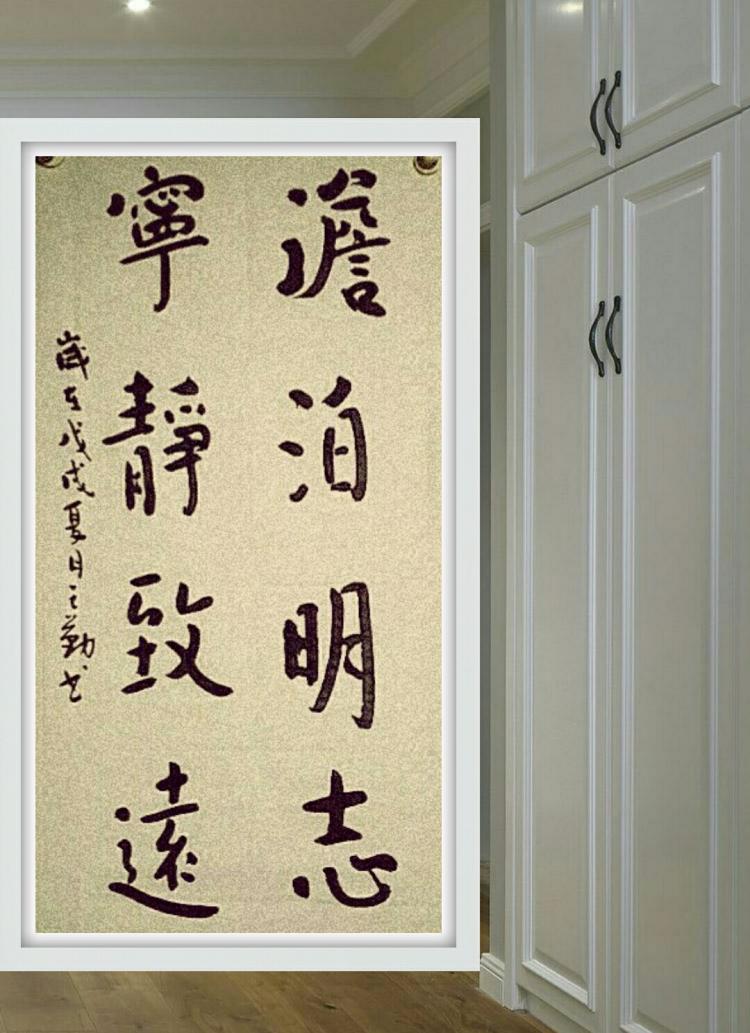 澹泊明志
寧靜致遠
歲在戊戌夏月之勤书